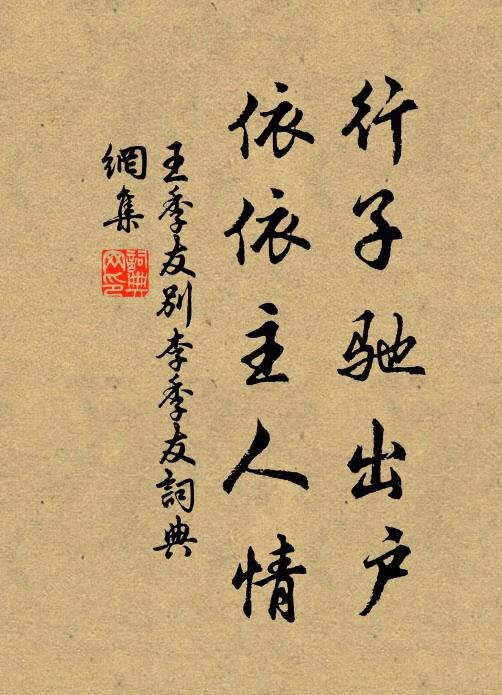 行子馳出户
依依主人情
王季友別李季友詞典
網集
詞典
网印